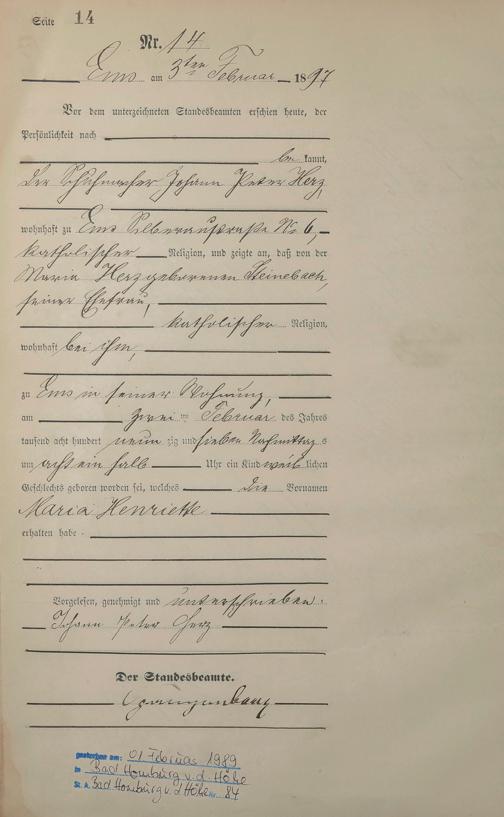 Seite 14
Nr. 14
Ems am 3ten Februar 1897
Vor dem unterzeichneten Standesbeamten erschien heute, der
Persönlichkeit nach
be kannt,
der Schuhmacher Johann Peter Herz,
wohnhaft zu Ems Silberaustraße No 6,
katholischer Religion, und zeigte an, daß von der
Maria Herz geborenen Steinebach,
seiner Ehefrau,
katholischer Religion,
wohnhaft bei ihm,
zu Ems in seiner Wohnung,
am zwei ten Februar des Jahres
tausend acht hundert neun zig und sieben Nachmittag s
um acht ein halb Uhr ein Kind weib lichen
Geschlechts geboren worden sei, welches die Vornamen
Maria Henriette
erhalten habe
Vorgelesen, genehmigt und unterschrieben.
Johann Peter Herz
Der Standesbeamte.
gestorben am: 01 Februar 1989
in Bad Homburg v. d. Höhe
St. A. Bad Homburg v. d. Höhe Nr. 84